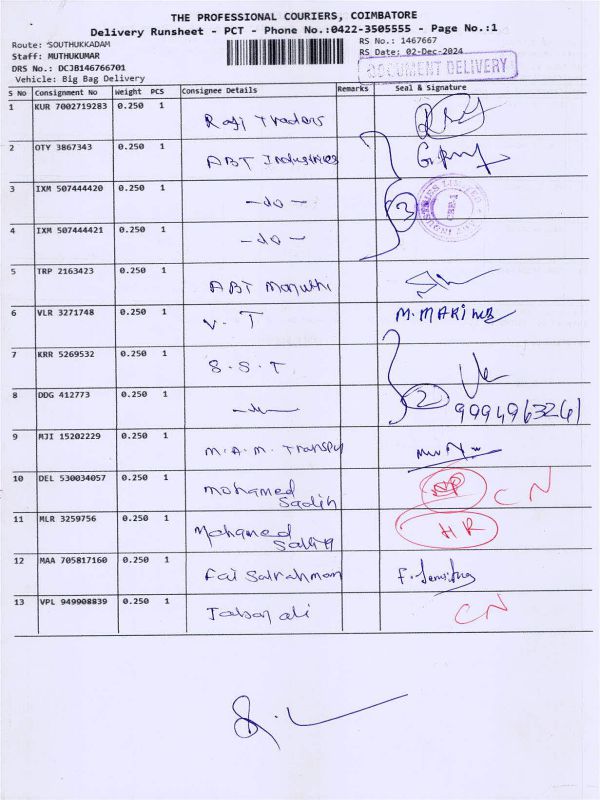 THE PROFESSIONAL COURIERS, COIMBATORE
Delivery Runsheet - PCT - Phone No.:0422-3505555 - Page No.:1
Route: SOUTHUKKADAM
RS No.: 1467667
Staff: MUTHUKUMAR
RS Date: 02-Dec-2024
DRS No.: DCJB146766701
DOCUMENT DELIVERY
Vehicle: Big Bag Delivery
S No Consignment No Weight PCS Consignee Details Remarks Seal & Signature
1 KUR 7002719283 0.250 1 Raji Traders
2 OTY 3867343 0.250 1 ABT Industries
3 IXM 507444420 0.250 1 -do- 3
4 IXM 507444421 0.250 1 -do-
5 TRP 2163423 0.250 1 ABT Maruthi
6 VLR 3271748 0.250 1 V. T M. MARI
7 KRR 5269532 0.250 1 S. S. T
8 DDG 412773 0.250 1 2 9994963261
9 MJI 15202229 0.250 1 M. A. M. Transpo
10 DEL 530034057 0.250 1 Mohamed Sadih CN
11 MLR 3259756 0.250 1 Mohamed HR
12 MAA 705817160 0.250 1
13 VPL 949908839 0.250 1 ali CN